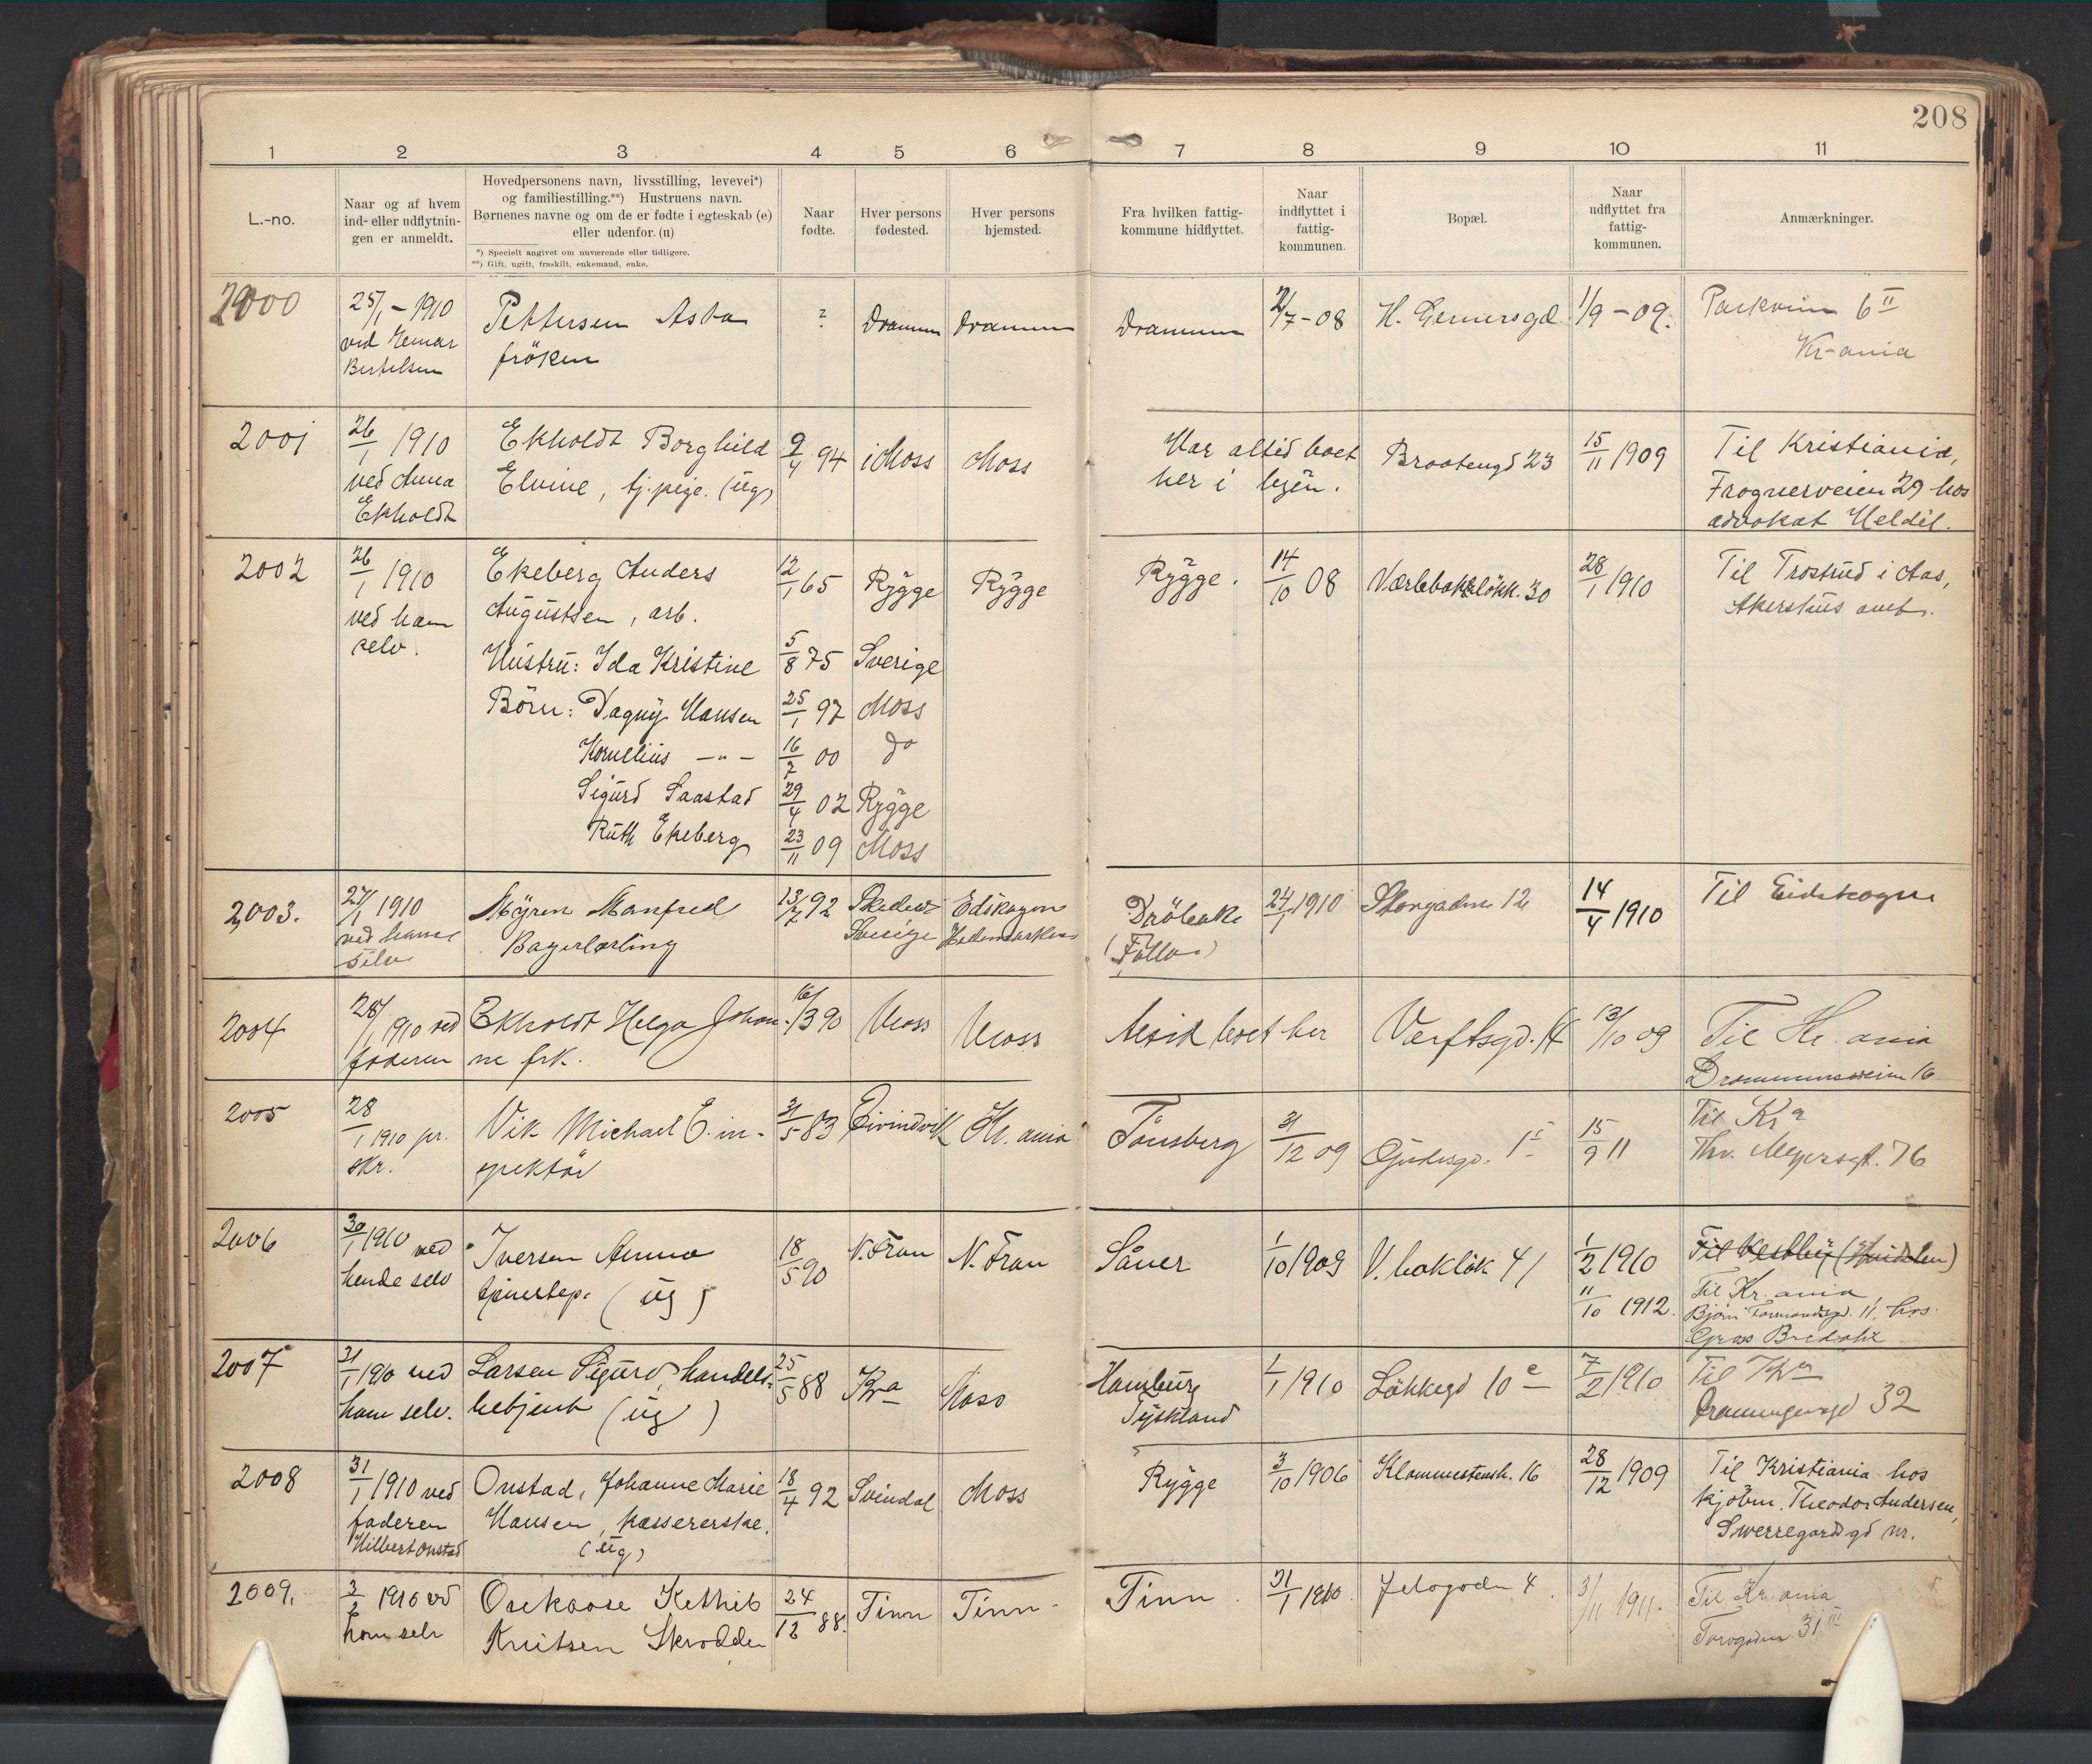 208
1 2 3 4 5 6 7 8 9 10 11
L.-no.
Naar og af hvem
ind- eller udflytnin-
gen er anmeldt.
Hovedpersonens navn, livsstilling, levevei*)
og familiestilling.**) Hustruens navn.
Børnenes navne og om de er fødte i egteskab (e)
eller udenfor. (u)
*) Specielt angivet om nuværende eller tidligere.
**) Gift, ugift, fraskilt, enkemand, enke.
Naar
fødte.
Hver persons
fødested.
Hver persons
hjemsted.
Fra hvilken fattig-
kommune hidflyttet.
Naar
indflyttet i
fattig-
kommunen.
Bopæl.
Naar
udflyttet fra
fattig-
kommunen.
Anmærkninger.
2000
25/1 - 1910
ved
Bertelsen
Pettersen Asta
frøken
?
Drammen
Drammen
Drammen
2/7 - 08
H. Gernersgd.
1/9 - 09.
Parkvein 6 II
Kr-ania
2001
26/1 1910
ved Anna
Ekholdt
Ekholdt Borghild
Elvine, tj.pige. (ug)
9/4 94
i Moss
Moss
Har altid boet
her i byen.
Braatengd 23
15/11 1909
Til Kristiania,
Frognerveien 29 hos
advokat
2002
26/1 1910
ved ham
selv.
Ekeberg Anders
Augustsen, arb.
Hustru: Ida Kristine
Børn: Dagny Hansen
Kornelius - " -
Sigurd Saastad
Ruth Ekeberg
12/1 65
5/8 75
25/1 97
16/7 00
29/4 02
23/11 09
Rygge
Sverige
Moss
do
Rygge
Moss
Rygge
Rygge.
14/10 08
Værlebakkeløkk. 30
28/1 1910
Til Trostrud i Aas,
Akershus amt.
2003.
27/1 1910
ved ham
selv
Myren Manfred
Bagerlærling
13/7 92
Sverige
Edskogen
Hedemarken
Drøbak
(Follo)
24/1 1910
Storgaden 12
14/4 1910
Til Eidskogen
2004
28/1 1910 ved
faderen
Ekholdt Helga Johan-
ne frk.
16/3 90
Moss
Moss
Altid boet her
Værftsgd. 14
13/10 09
Til Kr. ania
Drammensveien 16
2005
28/1 1910 pr.
skr.
Vik Michael E. in-
spektør
31/5 83
Eivindvik
Kr. ania
Tønsberg
31/12 09
Gudesgd. 1
15/9 11
Til Kra
Thv. Meyersgt. 76
2006
30/1 1910 ved
hende selv
Iversen Anna
tjenestep. (ug)
18/5 90
N. Fron
N. Fron
Såner
1/10 1909
V. bakløk 41
1/2 1910
11/10 1912.
Til Vestby
Til Kr. ania
Bjørn Farmandsgd. 11, hos
2007
31/1 1910 ved
ham selv.
Larsen Sigurd, handels-
betjent (ug)
25/5 88
Kra
Moss
Hamburg
Tyskland
1/1 1910
Løkkegd 10 e
7/2 1910
Til Kra
32
2008
31/1 1910 ved
faderen
Hilbert Onstad
Onstad, Johanne Marie
Hansen, kassererske.
(ug)
18/4 92
Svindal
Moss
Rygge
3/10 1906
Klommestensk. 16
28/12 1909
Til Kristiania hos
kjøbm. Theodor Andersen,
Sverregaardsgd nr.
2009.
3/2 1910 ved
ham selv
Knutsen Skrædder
24/12 88.
Tinn
Tinn
Tinn.
31/1 1910.
Jeløgaden 4.
3/11 1911.
Til Kr. ania
Torvgaden 31 III